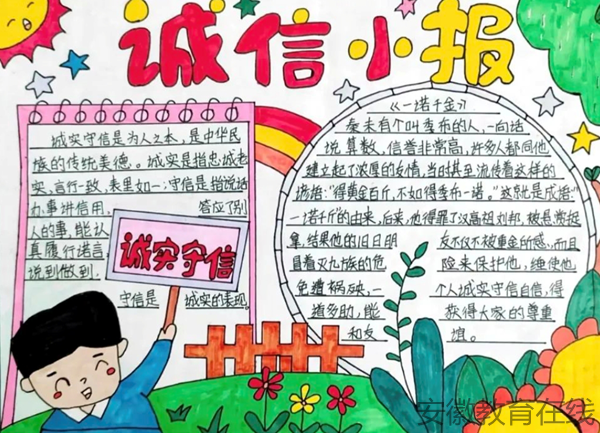 诚信小报
诚实守信是为人之本,是中华民
族的传统美德。诚实是指忠诚老
实,言行一致,表里如一;守信是指说话
办事讲信用, 答应了别
人的事,能认
真履行诺言,
说到做到.
守信是 诚实的表现.
诚实守信
《一诺千金》
秦末有个叫季布的人,一向说
说算数,信誉非常高,许多人都同他
建立起了浓厚的友情,当时甚至流传着这样的
谚语:“得黄金百斤,不如得季布一诺。”这就是成语“
一诺千斤”的由来,后来,他得罪了汉高祖刘邦,被悬赏捉
拿,结果他的旧日朋 友不仅不被重金所惑,而且
冒着灭九族的危 险来保护他,使他
免遭祸殃,一 个人诚实守信自信,得
道多助,能 获得大家的尊重
和友 谊。
安徽教育在线